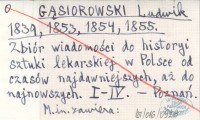 GĄSIOROWSKI Ludwik
1839, 1853, 1854, 1855.
Zbiór wiadomości do historyi
sztuki lekarskiej w Polsce od
czasów najdawniejszych, aż do
najnowszych. I-IV. — Poznań.
M.in. zawiera: